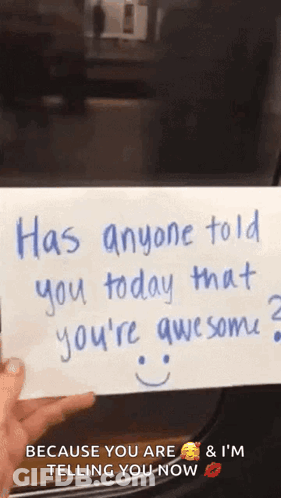 Has anyone told
you today that
you're awesome?
BECAUSE YOU ARE 🥰 & I'M
TELLING YOU NOW 💋
GIFDB.com